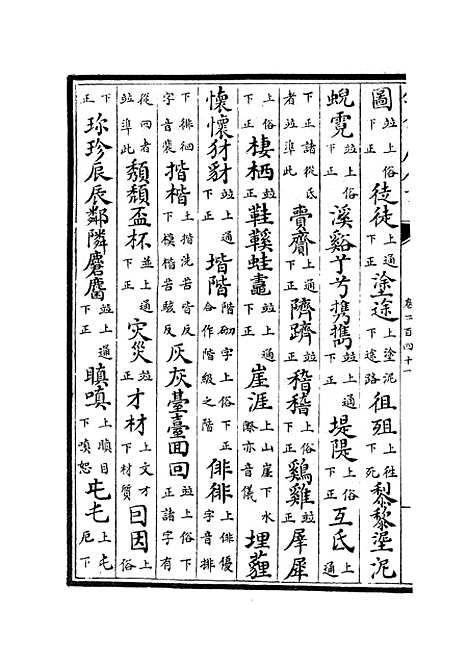 圖並上俗下正徒徒上通下正塗途上塗泥下途路徂殂上往下死𥠖黎埿泥
蜺霓並上俗下正溪谿𠀁兮携攜並上通下正堤隄上俗下正互氐上通
下正諸從氐者並準此賷齎上通下正隮躋稽稽上俗下正鷄雞並正犀犀
上俗下正棲栖並正鞋鞵蛙鼃並上通下正崖涯上山崖下水際亦音儀埋薶
懷懷犲豺並上通下正堦階階砌字上俗下正合作階級之階俳徘上俳優字音排
下徘徊字音裴揩楷上揩洗苦皆反下模楷苦駭反灰灰臺臺囬回並上俗下正諸字有
從囬者並準此頽頹盃杯並上通下正灾災並正才材上文才下材質囙因上俗
下正珎珍辰辰鄰隣麏麕並上通下正瞋嗔上瞋目下嗔怒㐌屯上屯下厄
卷二百四十一